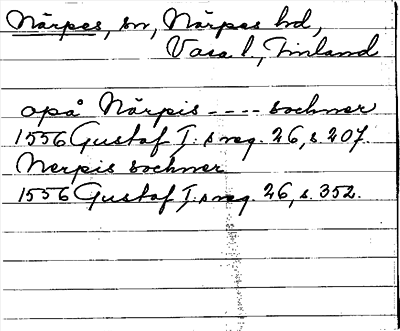 Närpes, sn, Närpes hd,
Vasa l., Finland
opå Närpis ---- sochner
1556 Gustaf I:s reg. 26, s. 207.
Nerpis sochner
1556 Gustaf I:s reg. 26, s. 352.